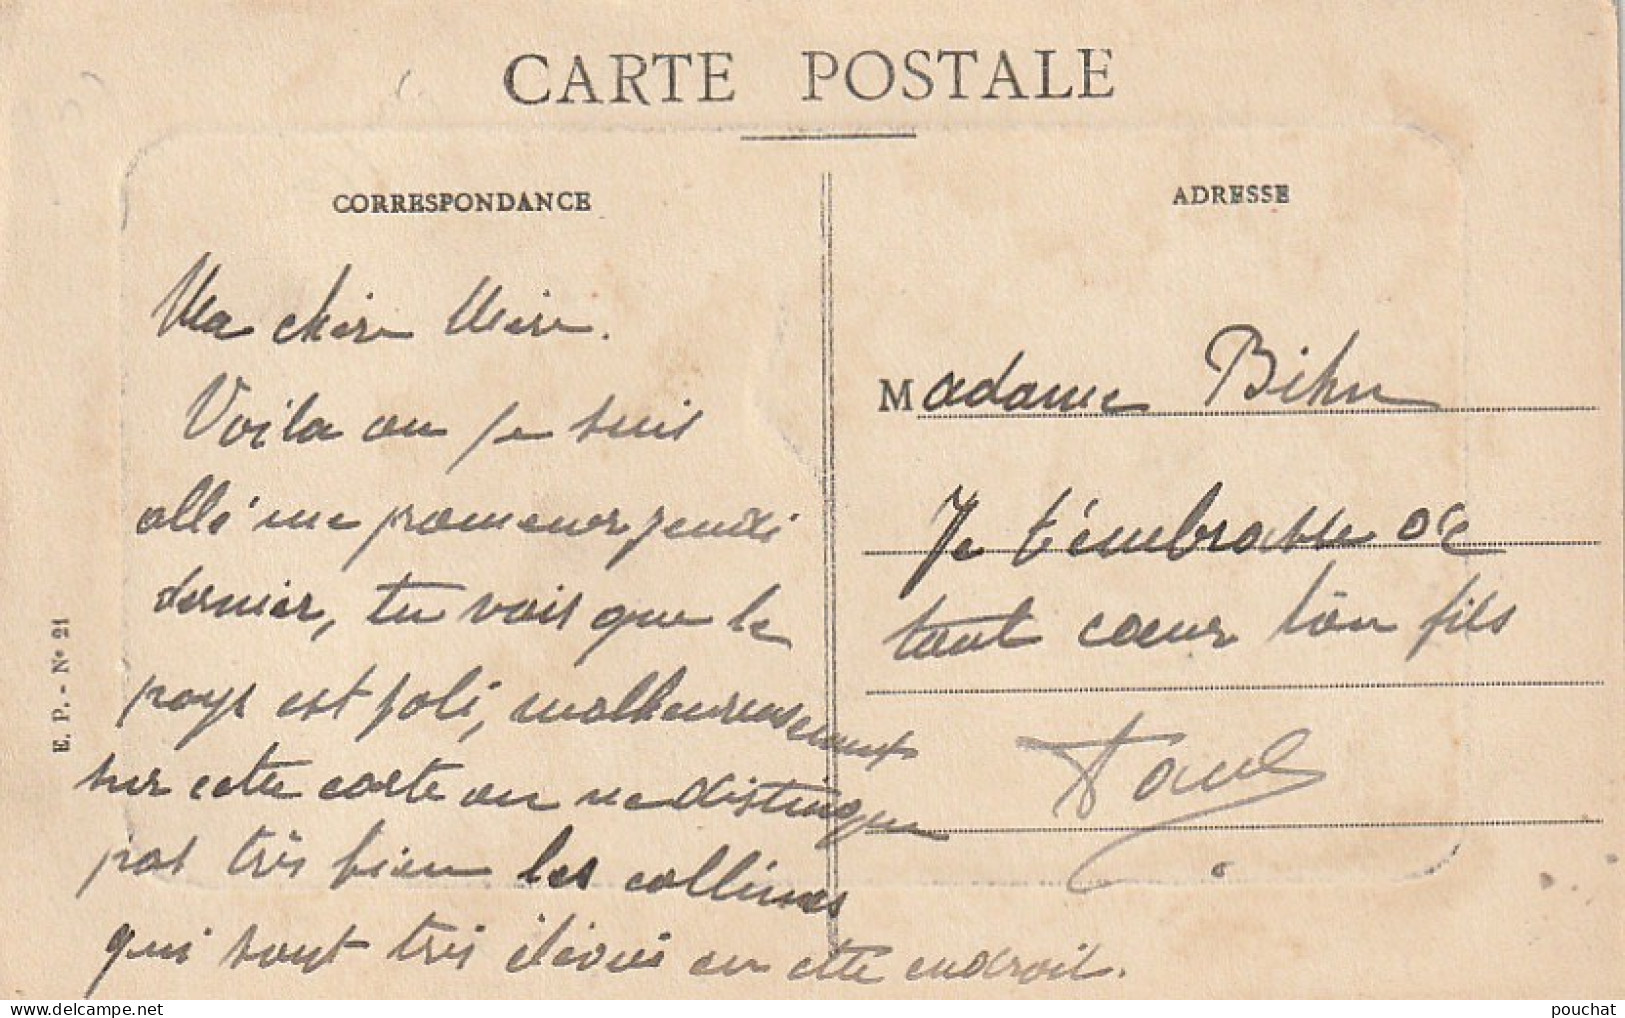 CARTE POSTALE
CORRESPONDANCE
Ma chère Mère.
Voila ou je suis
allé me promener, jeudi
dernier, tu vois que le
pays est joli, malheureusement
sur cette carte on ne distingue
pas très bien les collines
qui sont très élevées en cette endroit.
ADRESSE
Madame Bihn
Je t'embrasse de
tout cœur ton fils
Paul
E. P. - N° 21
pouchat